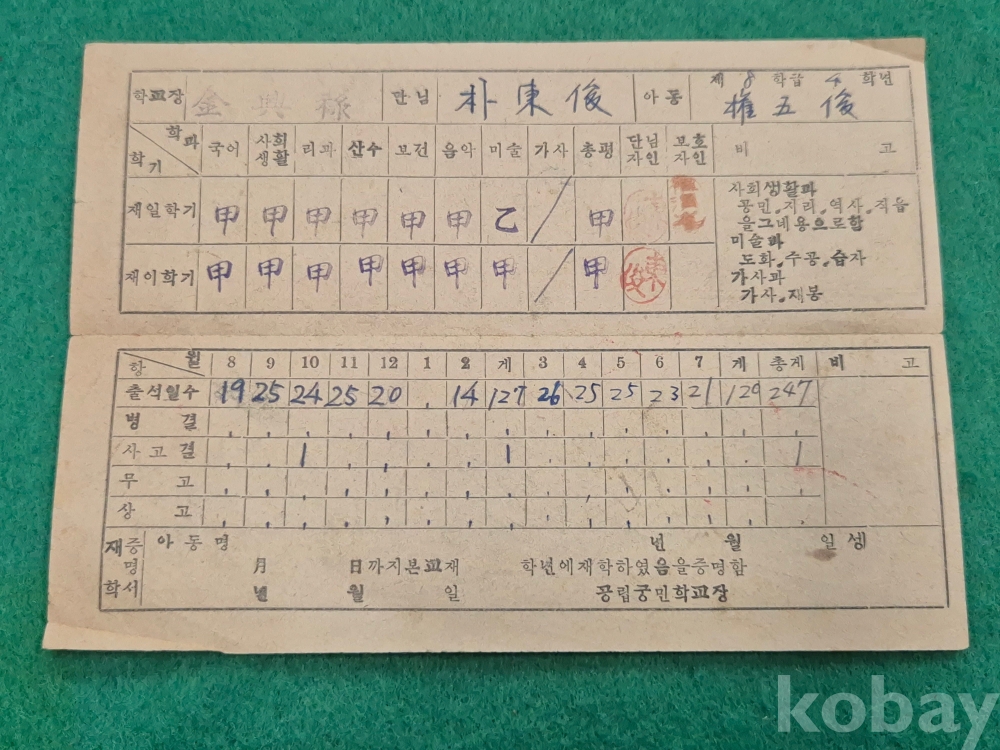 학교장 金興祿 단님 朴東俊 아동 제8학급4학년 權五俊
학과 학기 국어 사회생활 리과 산수 보건 음악 미술 가사 총평 단님자인 보호자인 비 고
재일학기 甲 甲 甲 甲 甲 甲 乙 / 甲
재이학기 甲 甲 甲 甲 甲 甲 甲 / 甲 東俊
사회생활과
공민.지리.역사.직읍
을그네용으로함
미술과
도화.수공.습자
가사과
가사.재봉
항 월 8 9 10 11 12 1 2 게 3 4 5 6 7 게 총게 비 고
출석일수 19 25 24 25 20 . 14 127 26 25 25 23 21 120 247
병 결
사고결 1 1 1
무 고
상 고
재증명학서 아동명 년 월 일셍
月 日까지본교재 학년에재학하였음을증명함
년 월 일 공립궁민학교장
kobay